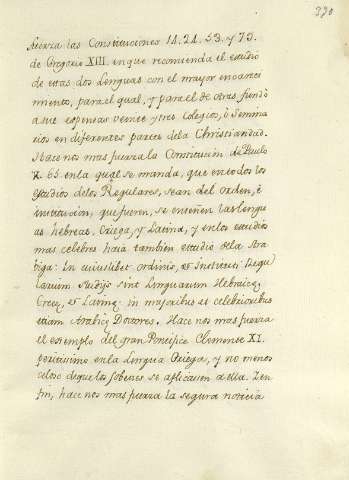 330
fuerza las Constituciones 14. 21. 53. y 73.
de Gregorio XIII. en que recomienda el estudio
de estas dos Lenguas con el mayor encareci
miento, para el qual, y para el de otras fundó
a sus espensas veinte y tres Colegios, ò Semina
rios en diferentes partes de la Christiandad.
Hace nos mas fuerza la Constitucion de Paulo
V. 65 en la qual se manda, que en todos los
estudios de los Regulares, sean del Orden, è
institucion, que fueren, se enseñen las lengu
as hebrea, Griega, y Latina, y en los estudios
mas celebres haia tambien estudio de la Ara
biga: In cuiuslibet ordinis, et Instituti Regu
larium studijs sint Linguarum Hebraicę,
Grecę, et Latinę: in majoribus et celebrioribus
etiam Arabicę Doctores. Hace nos mas fuerza
el exemplo del gran Pontifice Clemente XI.
peritissimo en la Lengua Griega, y no menos
celoso de que los jobenes se aplicasen a ella. I en
fin, hace nos mas fuerza la segura noticia